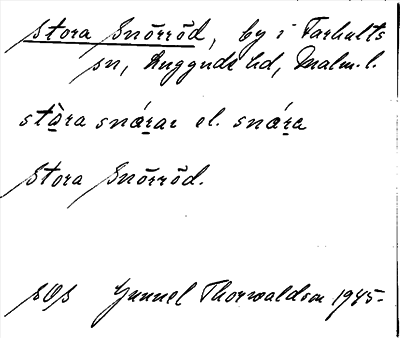 Stora Snörröd, by i Farhults
sn, Luggude hd, Malm. l.
stòra snárar el. snára
Stora Snörröd.
SOS Gunnel Thorwaldson 1945-